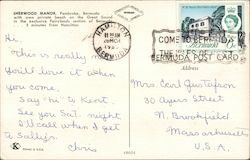 SHERWOOD MANOR, Pembroke, Bermuda
with own private beach on the Great Sound
in the exclusive Fairylands section of
2 minutes from Hamilton.
HAMILTON
BERMUDA
COME TO BERMUDA
THE
BERMUDA POST CARD
Address
Hi,
This is really
you'd love it when
you come.
Say "hi" to Kent
See you Sat. night
I'll call when I get
to Sally's.
Chris
Mrs. Carl Gustafson
30 Ayers Street
N. Brookfield
Massachusetts
U.S.A.